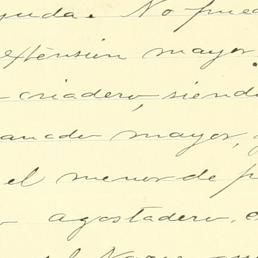 yuda. No pued
extensión mayor
criadero, siendo
ganado mayor,
el menor de p
agostadero, e
el N